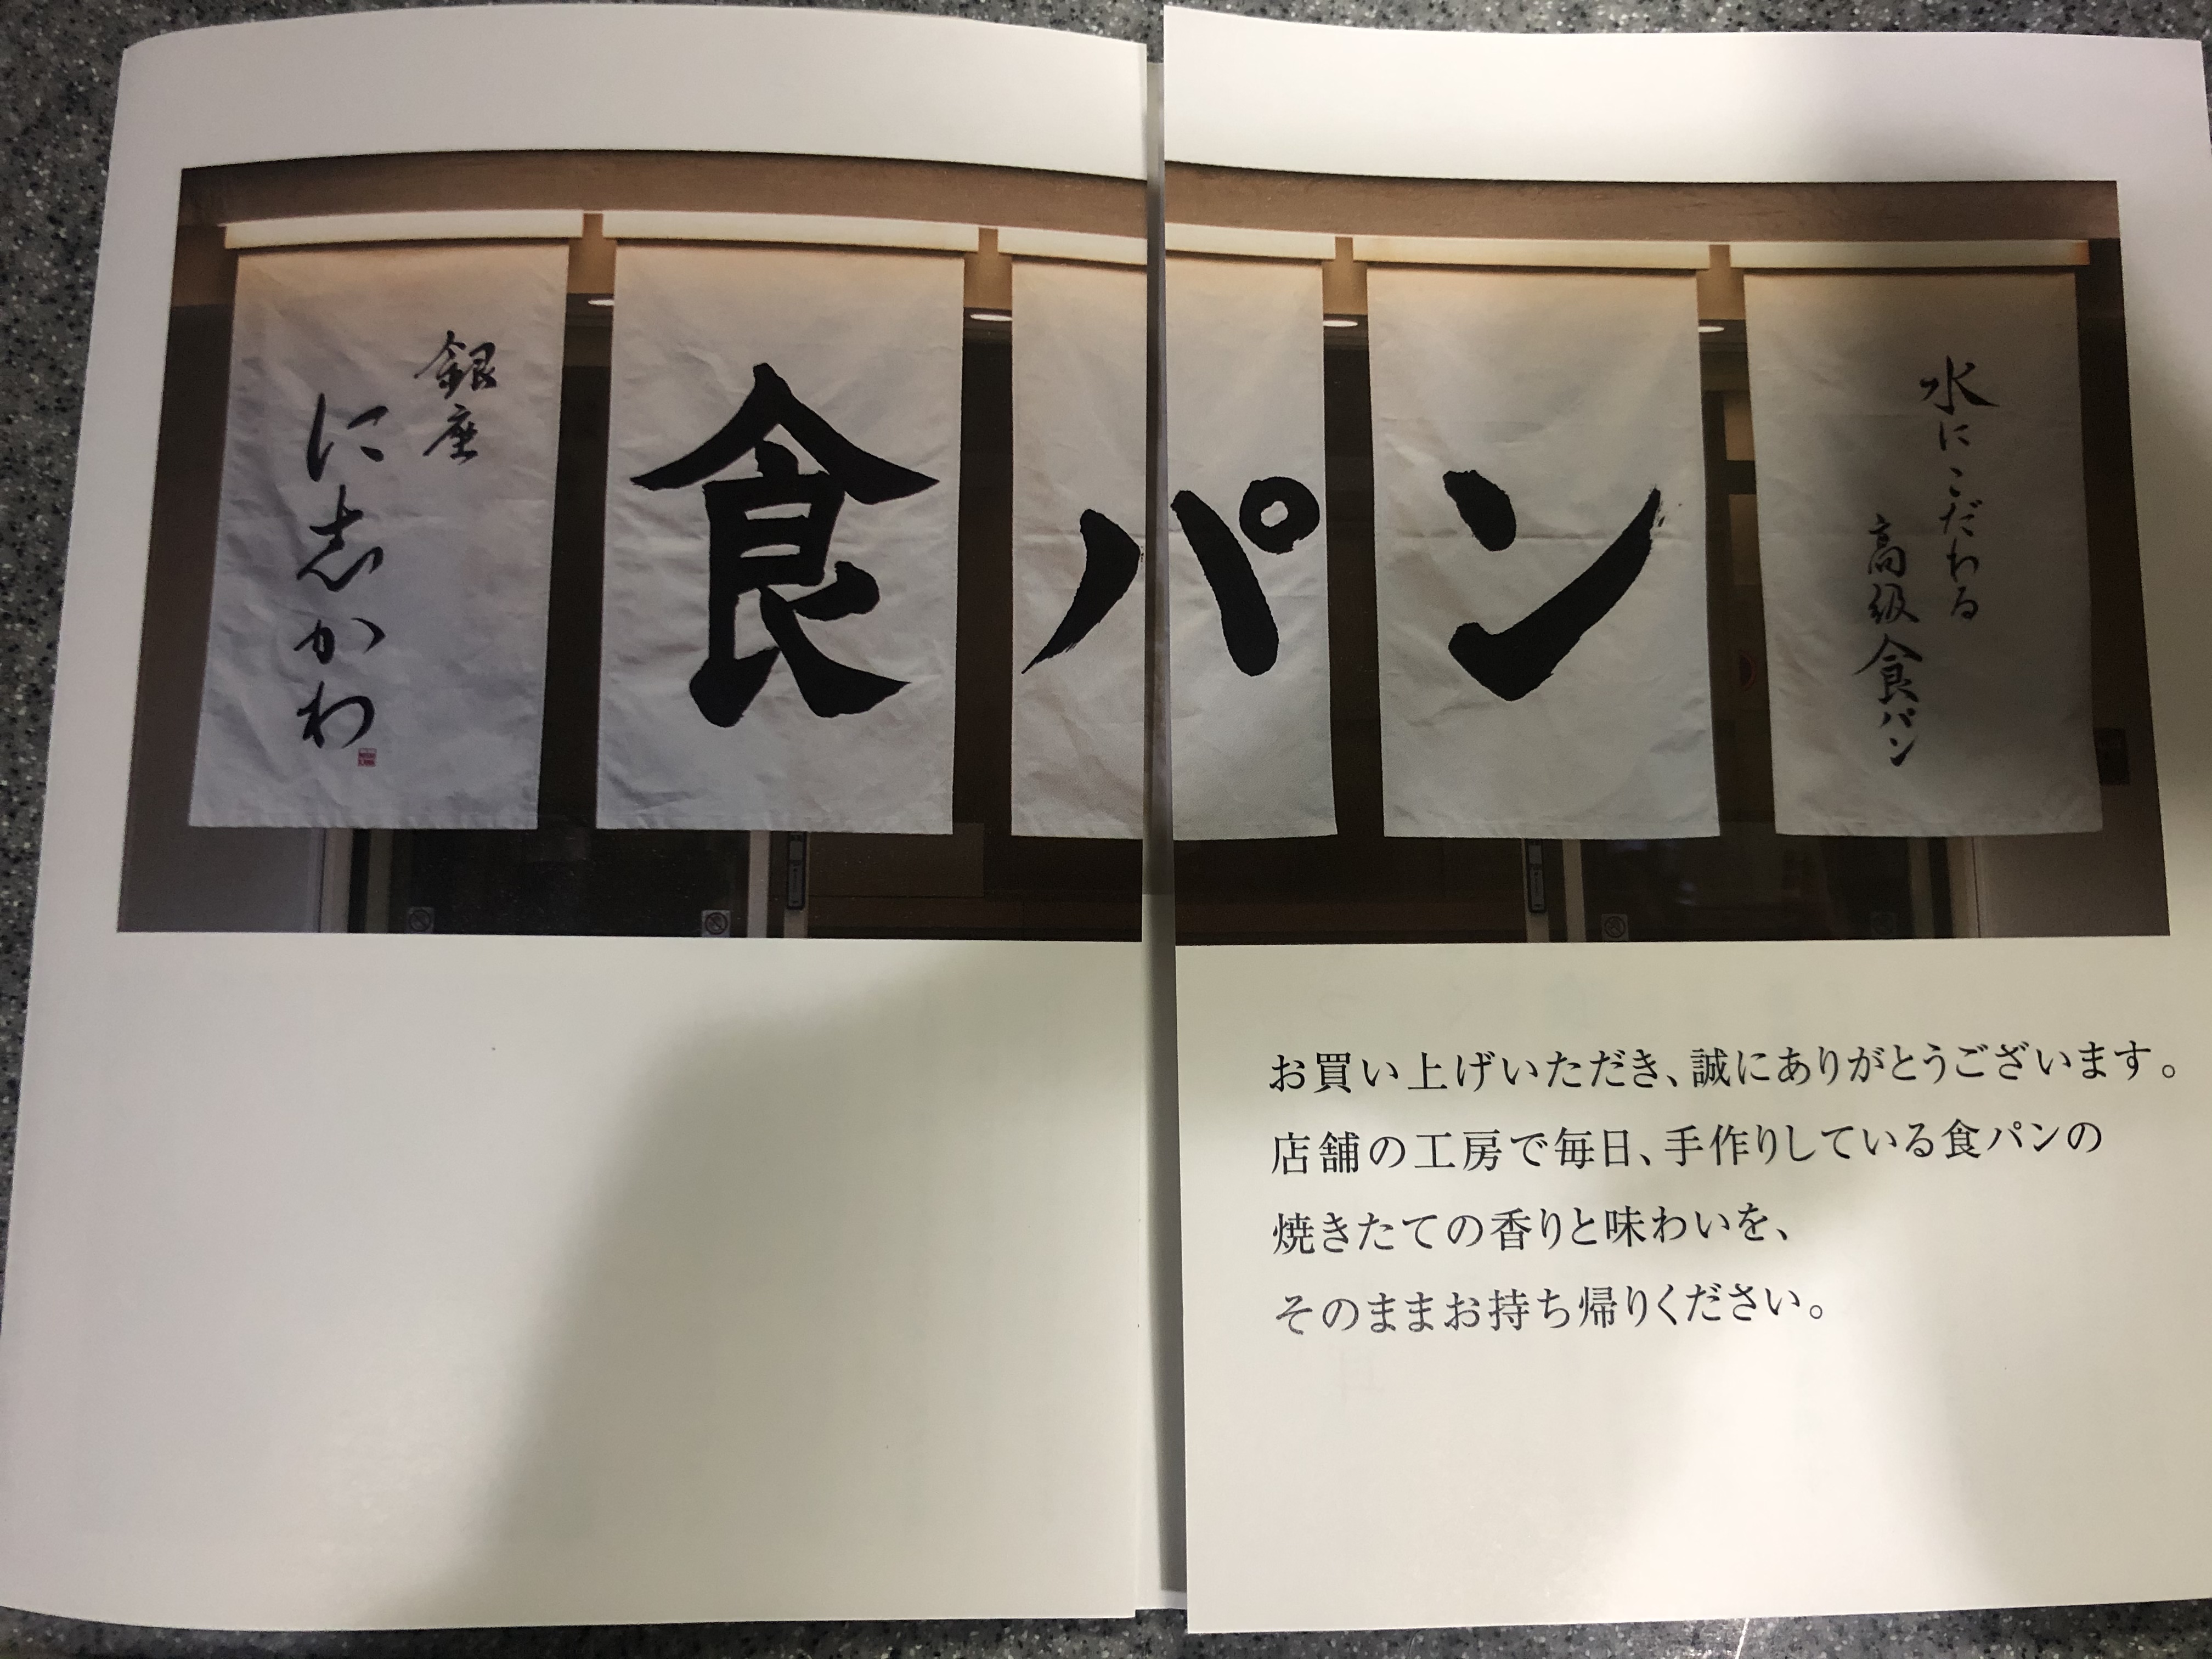 銀座
に志かわ
食パン
水にこだわる
高級食パン
お買い上げいただき、誠にありがとうございます。
店舗の工房で毎日、手作りしている食パンの
焼きたての香りと味わいを、
そのままお持ち帰りください。